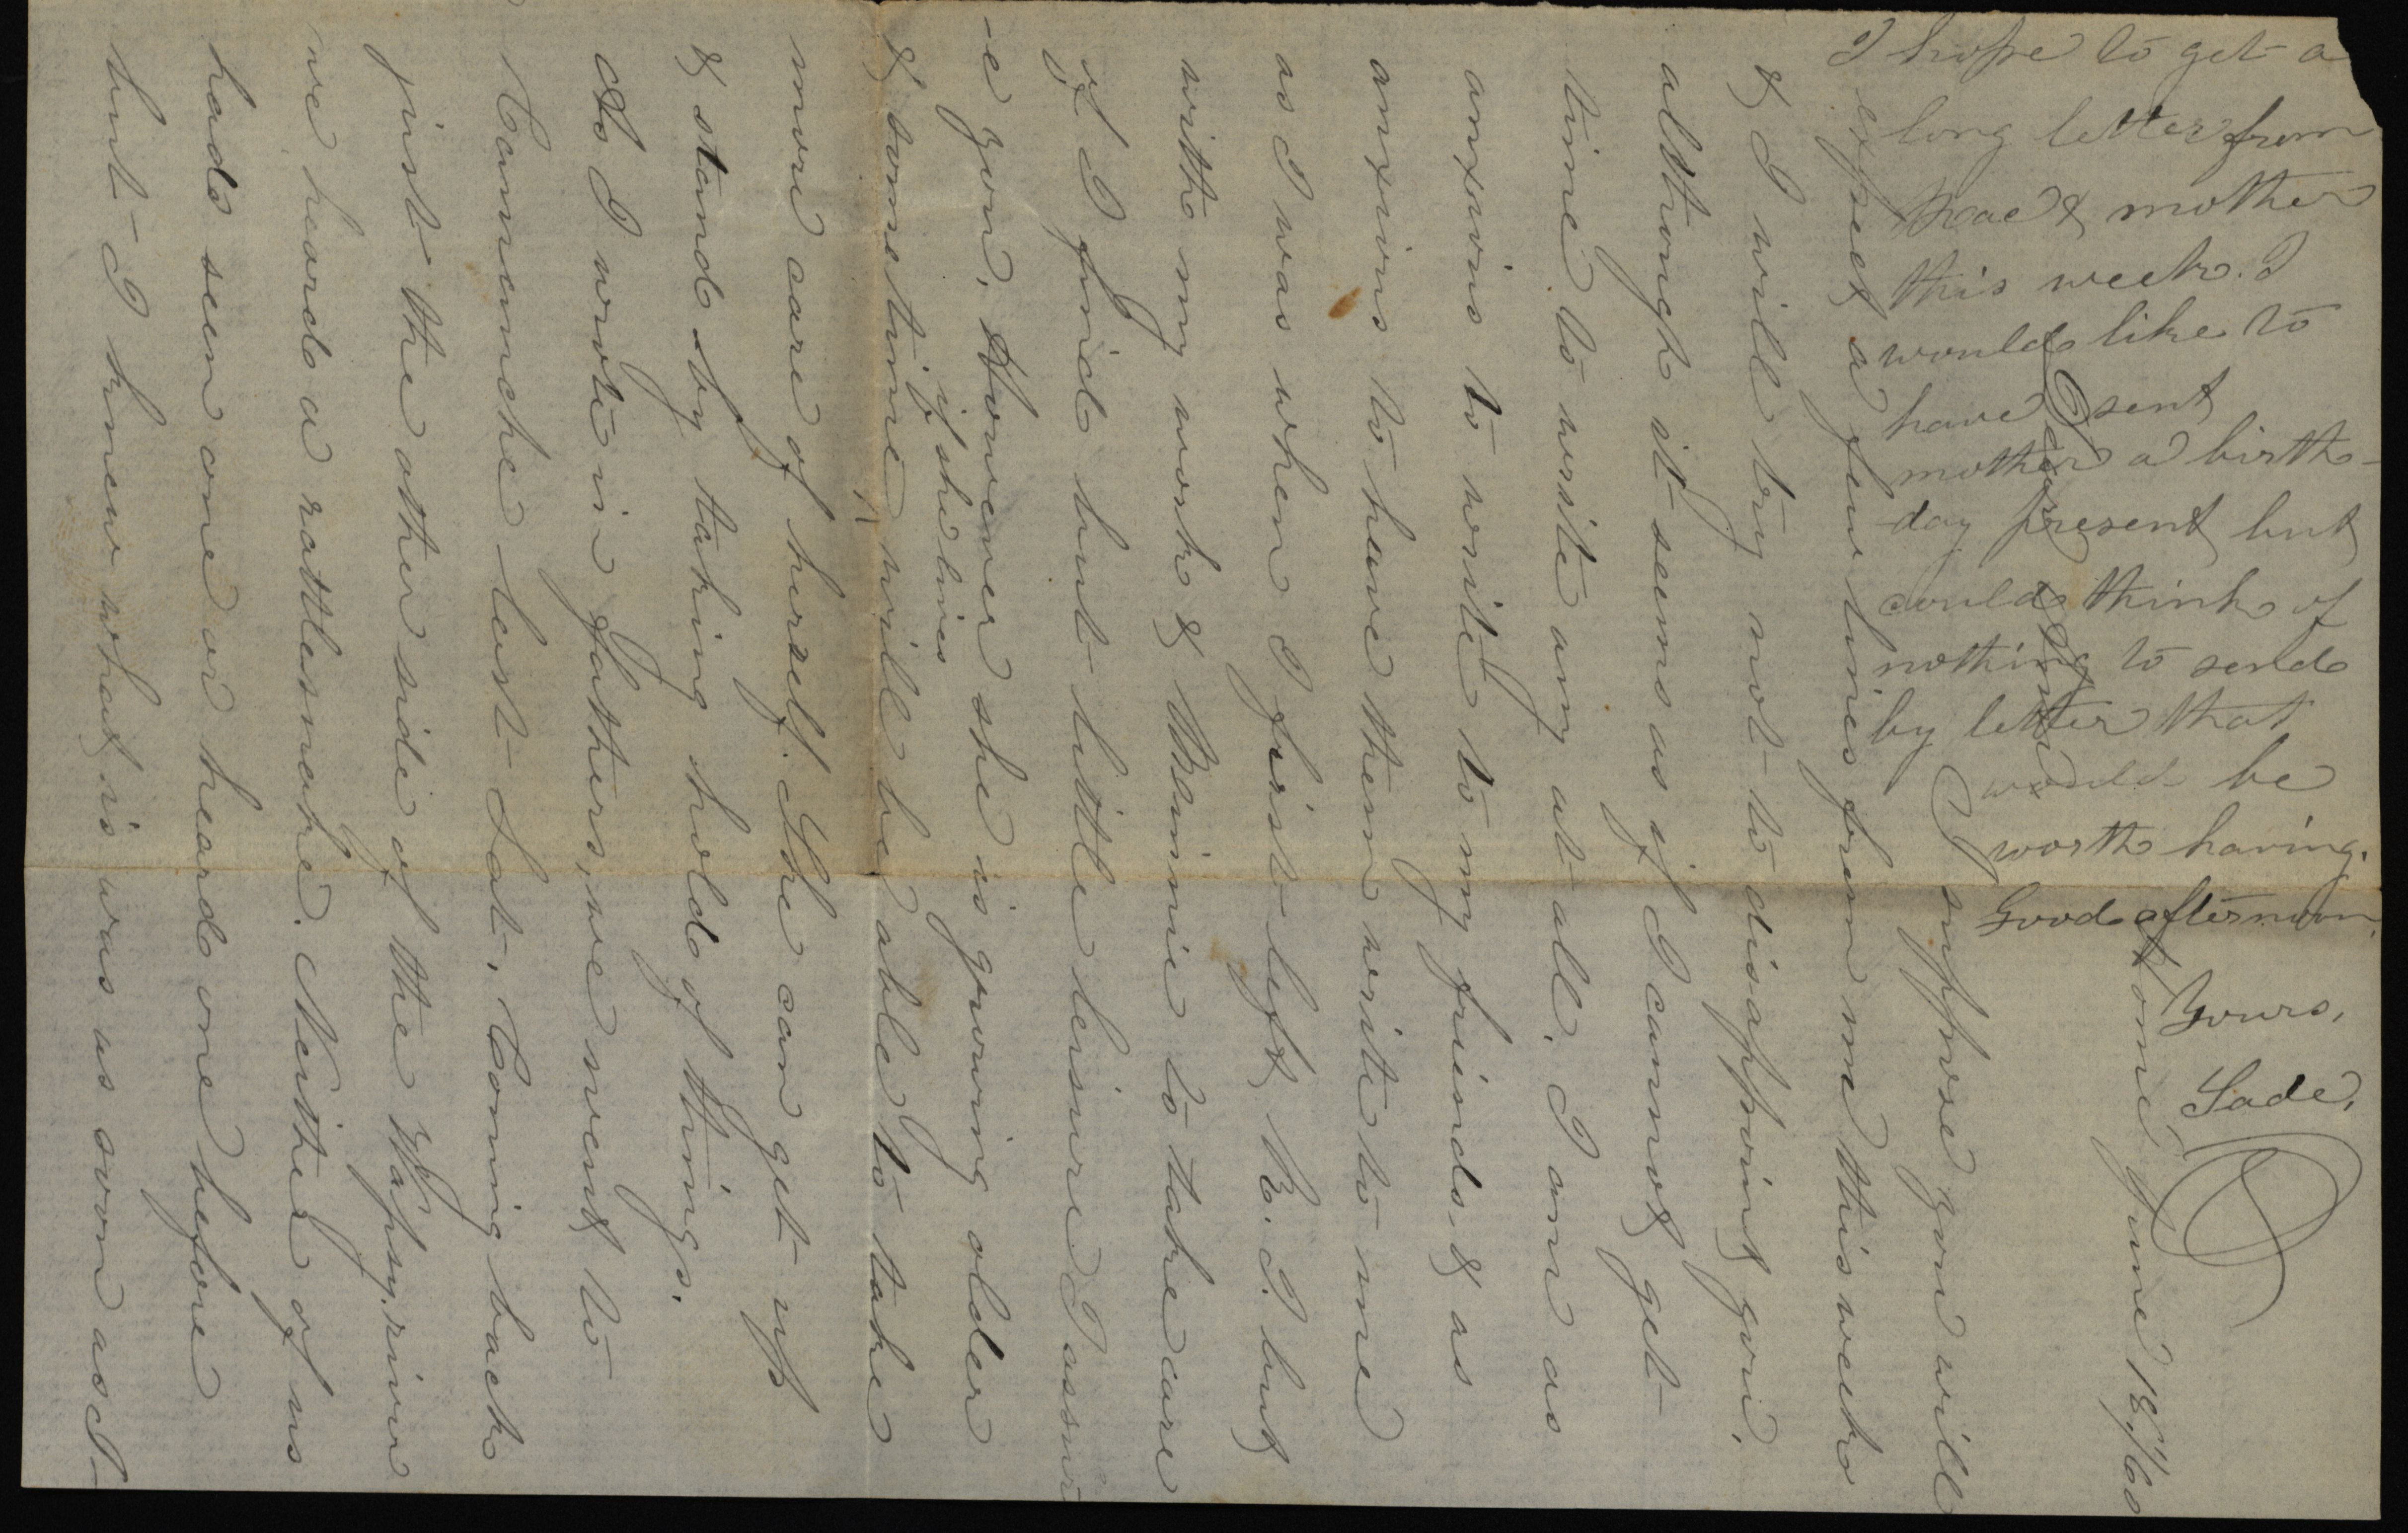 Home, June 18,/60
Dear Emma
I suppose you will
expect a few lines from me this week
& I will try not to disappoint you,
although it seems as if I cannot get
time to write any at all. I am as
anxious to write to my friends, & as
anxious to have them write to me
as I was when I first left R. I. but
with my work & Minnie to take care
of I find but little leisure I assur
-e you. However she is growing older
& sometime, if she lives
will be able to take
more care of herself. She can get up
& stand by taking hold of things.
As I wrote in fathers, we went to
Council last Sat. Coming back
just the other side of the Wapsy, river
we heard a rattlesnake. Neither of us
had seen one or heard one before
but I knew what is was as soon as I
I hope to get a
long letter from
Rae & mother
this week. I
would like to
have sent
mother a birth-
day present but
could think of
nothing to send
by letter that
would be
worth having.
Good afternoon.
Yours,
Sade,